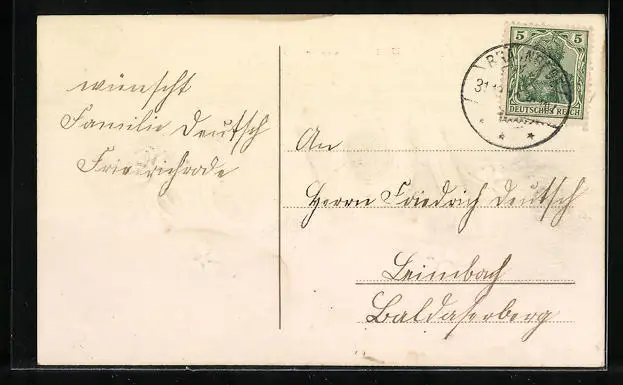 wünscht
Familie Deutsch
Friedrichrode
5 5
DEUTSCHES REICH
31.12
An
Herrn Friedrich Deutsch
Leimbach